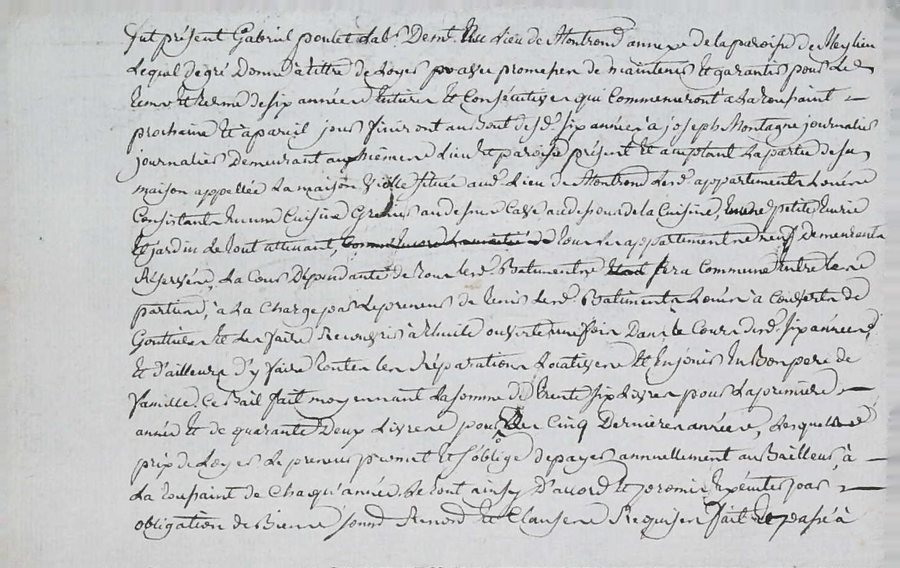 fut présent Gabriel poulet lab.r Demt. au lieu de Montrond annexe de la paroisse de Meylieu
Lequel de gré Donne à tittre de Loyer pr avec promesse de maintenir Et garantir pour Le
tems Et terme de six années futures Et Conséqutives qui Commenceront a La toussaint
prochaine Et à pareil jour finiront au Bout desd. six années à joseph Montagne journalier
journalier Demeurant au même Lieu Et paroisse présent Et acceptant La partie de sa
maison appellée La maison située aud. Lieu de Montrond Lesd. appartements Loués
Consistants En une Cuisine Grenier au dessus Cave au dessous de la Cuisine, une petite Ecurie
Et jardin Le tout attenant, tous Les appartements neufs demeurants
Réservés, La Cour Dépendante de tous Lesd. Batiments sera Commune Entre les
parties, à La Charge par Le preneur de tenir Lesd. Batiments Loués à Couverts de
Gouttières Et de les faire Recouvrir à thuile ouverte une fois Dans le Cours desd. six années,
Et d'ailleurs d'y faire toutes les Réparations Locatives Et En jouir En Bon pere de
famille. Ce Bail fait moyennant La somme de trente six Livres pour La premiere
année Et de quarante Deux Livres pour Les Cinq Dernieres années, Lesquels
prix de Loyer Le preneur promet Et s'oblige de payer annuellement au Bailleur à
La toussaint de Chaqu'année Le tout ainsy D'accord Et promis Exécuter par
obligation de Biens soumis Renond Et Clauses Requises fait Et passé à